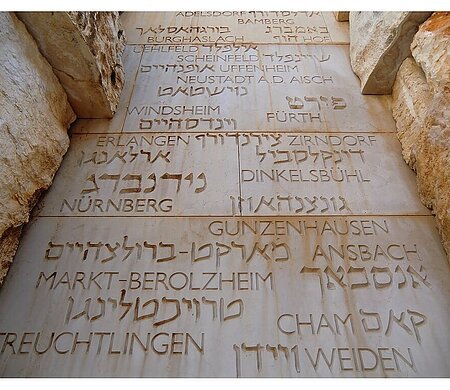 ADELSDORF
BAMBERG באמברג
בורגהאסלאך
BURGHASLACH הוף HOF
UEHLFELD אילפלד שיינפלד
SCHEINFELD
אופנהיים UFFENHEIM
NEUSTADT A.D. AISCH
נוישטאט
WINDSHEIM פירט
וינדסהיים FÜRTH
ERLANGEN צירנדורף ZIRNDORF
ארלאנגן דינקלסביל
נירנברג DINKELSBÜHL
NÜRNBERG גונצנהאוזן
GUNZENHAUSEN
מארקט-ברולצהיים ANSBACH
MARKT-BEROLZHEIM אנסבאך
טרויכטלינגן CHAM קאם
TREUCHTLINGEN ויידן WEIDEN